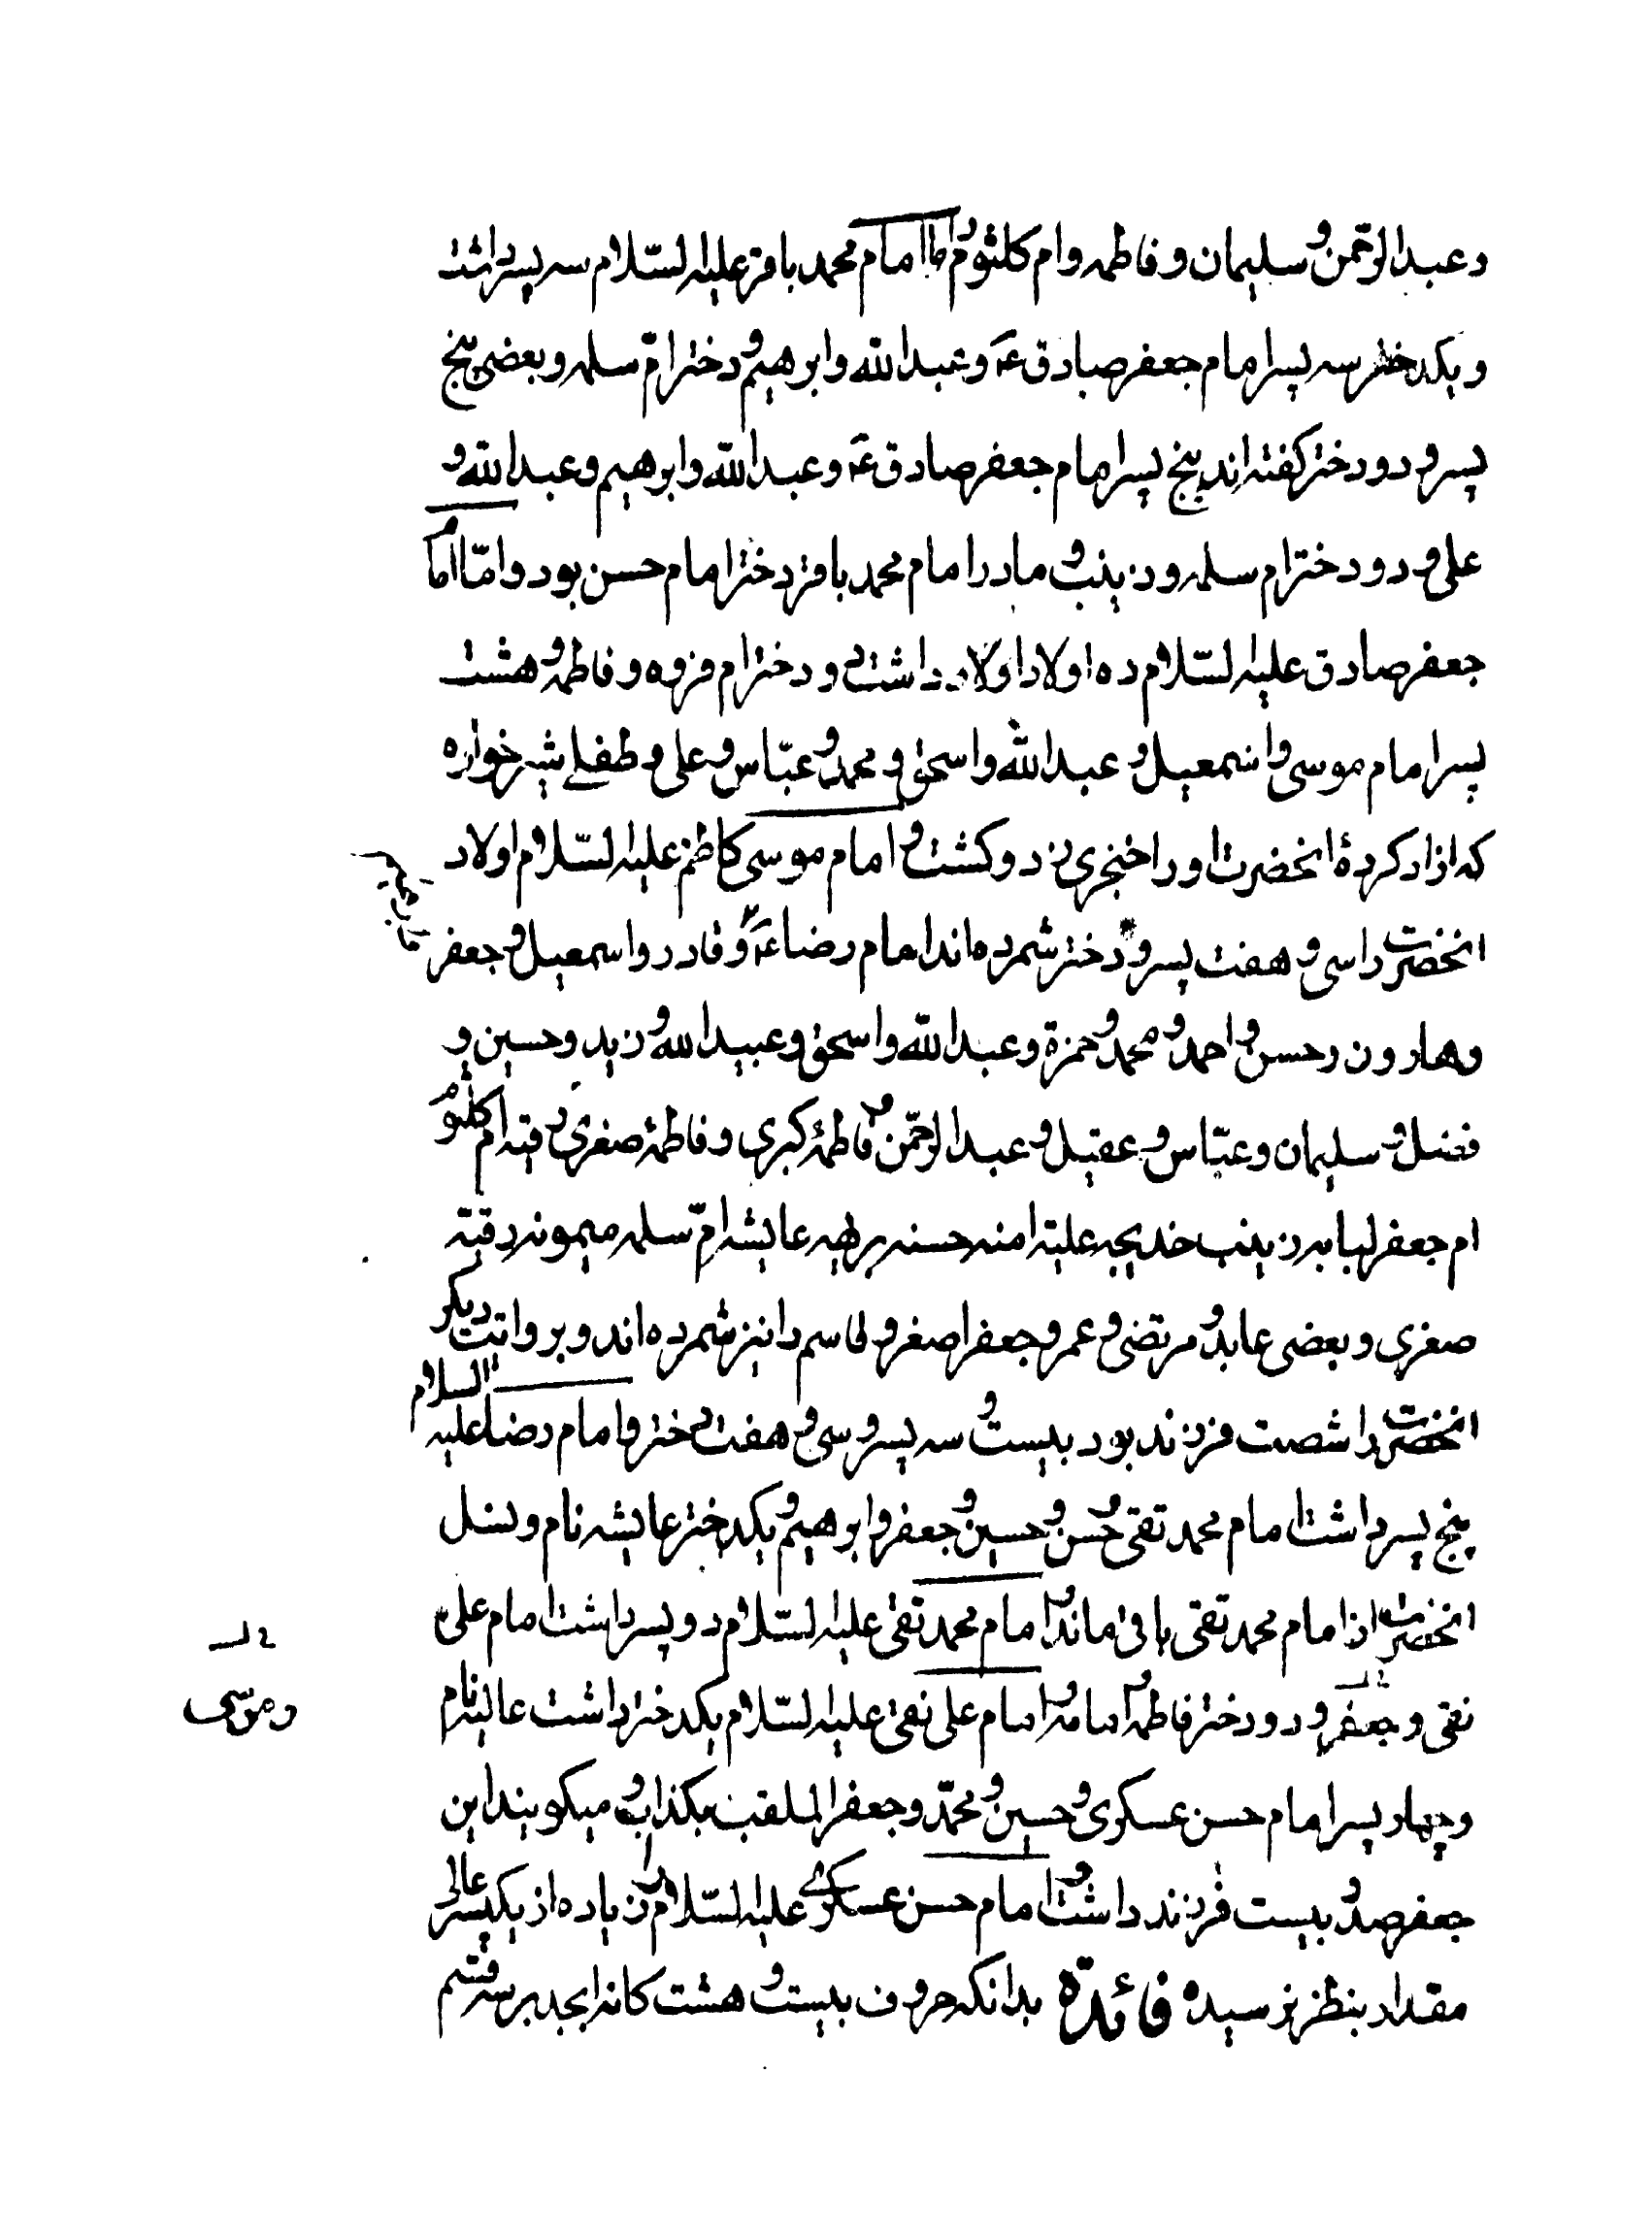 و عبدالرحمن و سلیمان و فاطمه و ام کلثوم و اما امام محمد باقر علیه السلام سه پسر داشت
و یکدختر سه پسر امام جعفر صادق ع و عبدالله و ابرهیم و دختر ام سلمه و بعضی پنج
پسر و دو دختر کفته اند پنج پسر امام جعفر صادق ع و عبدالله و ابرهیم و عبدالله و
علی و دو دختر ام سلمه و زینب و مادر امام محمد باقر دختر امام حسن بود و اما امام
جعفر صادق علیه السلام ده اولاد اولاد داشت دو دختر ام فروه و فاطمه و هشت
پسر امام موسی و اسمعیل و عبدالله و اسحق و محمد و عباس و علی و طفلے شیرخواره
که ازاد کردهٔ انحضرت او را خنجری زد و کشت و امام موسی کاظم علیه السلام اولاد
انحضرت را سی و هفت پسر و دختر شمرده اند امام رضا ع و قادر و اسمعیل و جعفر
و هارون و حسن و احمد و محمد و حمزة و عبدالله و اسحق و عبیدالله و زید و حسین و
فضل و سلیمان و عباس و عقیل و عبدالرحمن و فاطمهٔ کبری و فاطمهٔ صغری رقیه ام کلثوم
ام جعفر لبابه زینب خدیجه علیة امنه حسنه بریهه عایشه ام سلمه میمونه رقیة
صغری و بعضی عابد و مرتضی و عمر و جعفر اصغر و قاسم را نیز شمرده اند و بروایت دیکر
انحضرت را شصت فرزند بود بیست و سه پسر و سی و هفت دختر و امام رضا علیه السلام
پنج پسر داشت امام محمد تقی و حسن و حسین و جعفر و ابرهیم و یکدختر عایشه نام و نسل
انحضرت از امام محمد تقی باقی ماند و امام محمد تقی علیه السلام دو پسر داشت امام علی
نقی و جعفر و دو دختر فاطمه و امامه و امام علی نقی علیه السلام یکدختر داشت عالیه نام
و موسی
و چهار پسر امام حسن عسکری و حسین و محمد و جعفر الملقب بکذاب و میکویند این
جعفر صد و بیست فرزند داشت و امام حسن عسکرے علیه السلام را زیاده از یکپسر عالی
مقدار بنظر نرسیده فائدة بدانکه حروف بیست و هشت کانه ابجد بر سه قسم